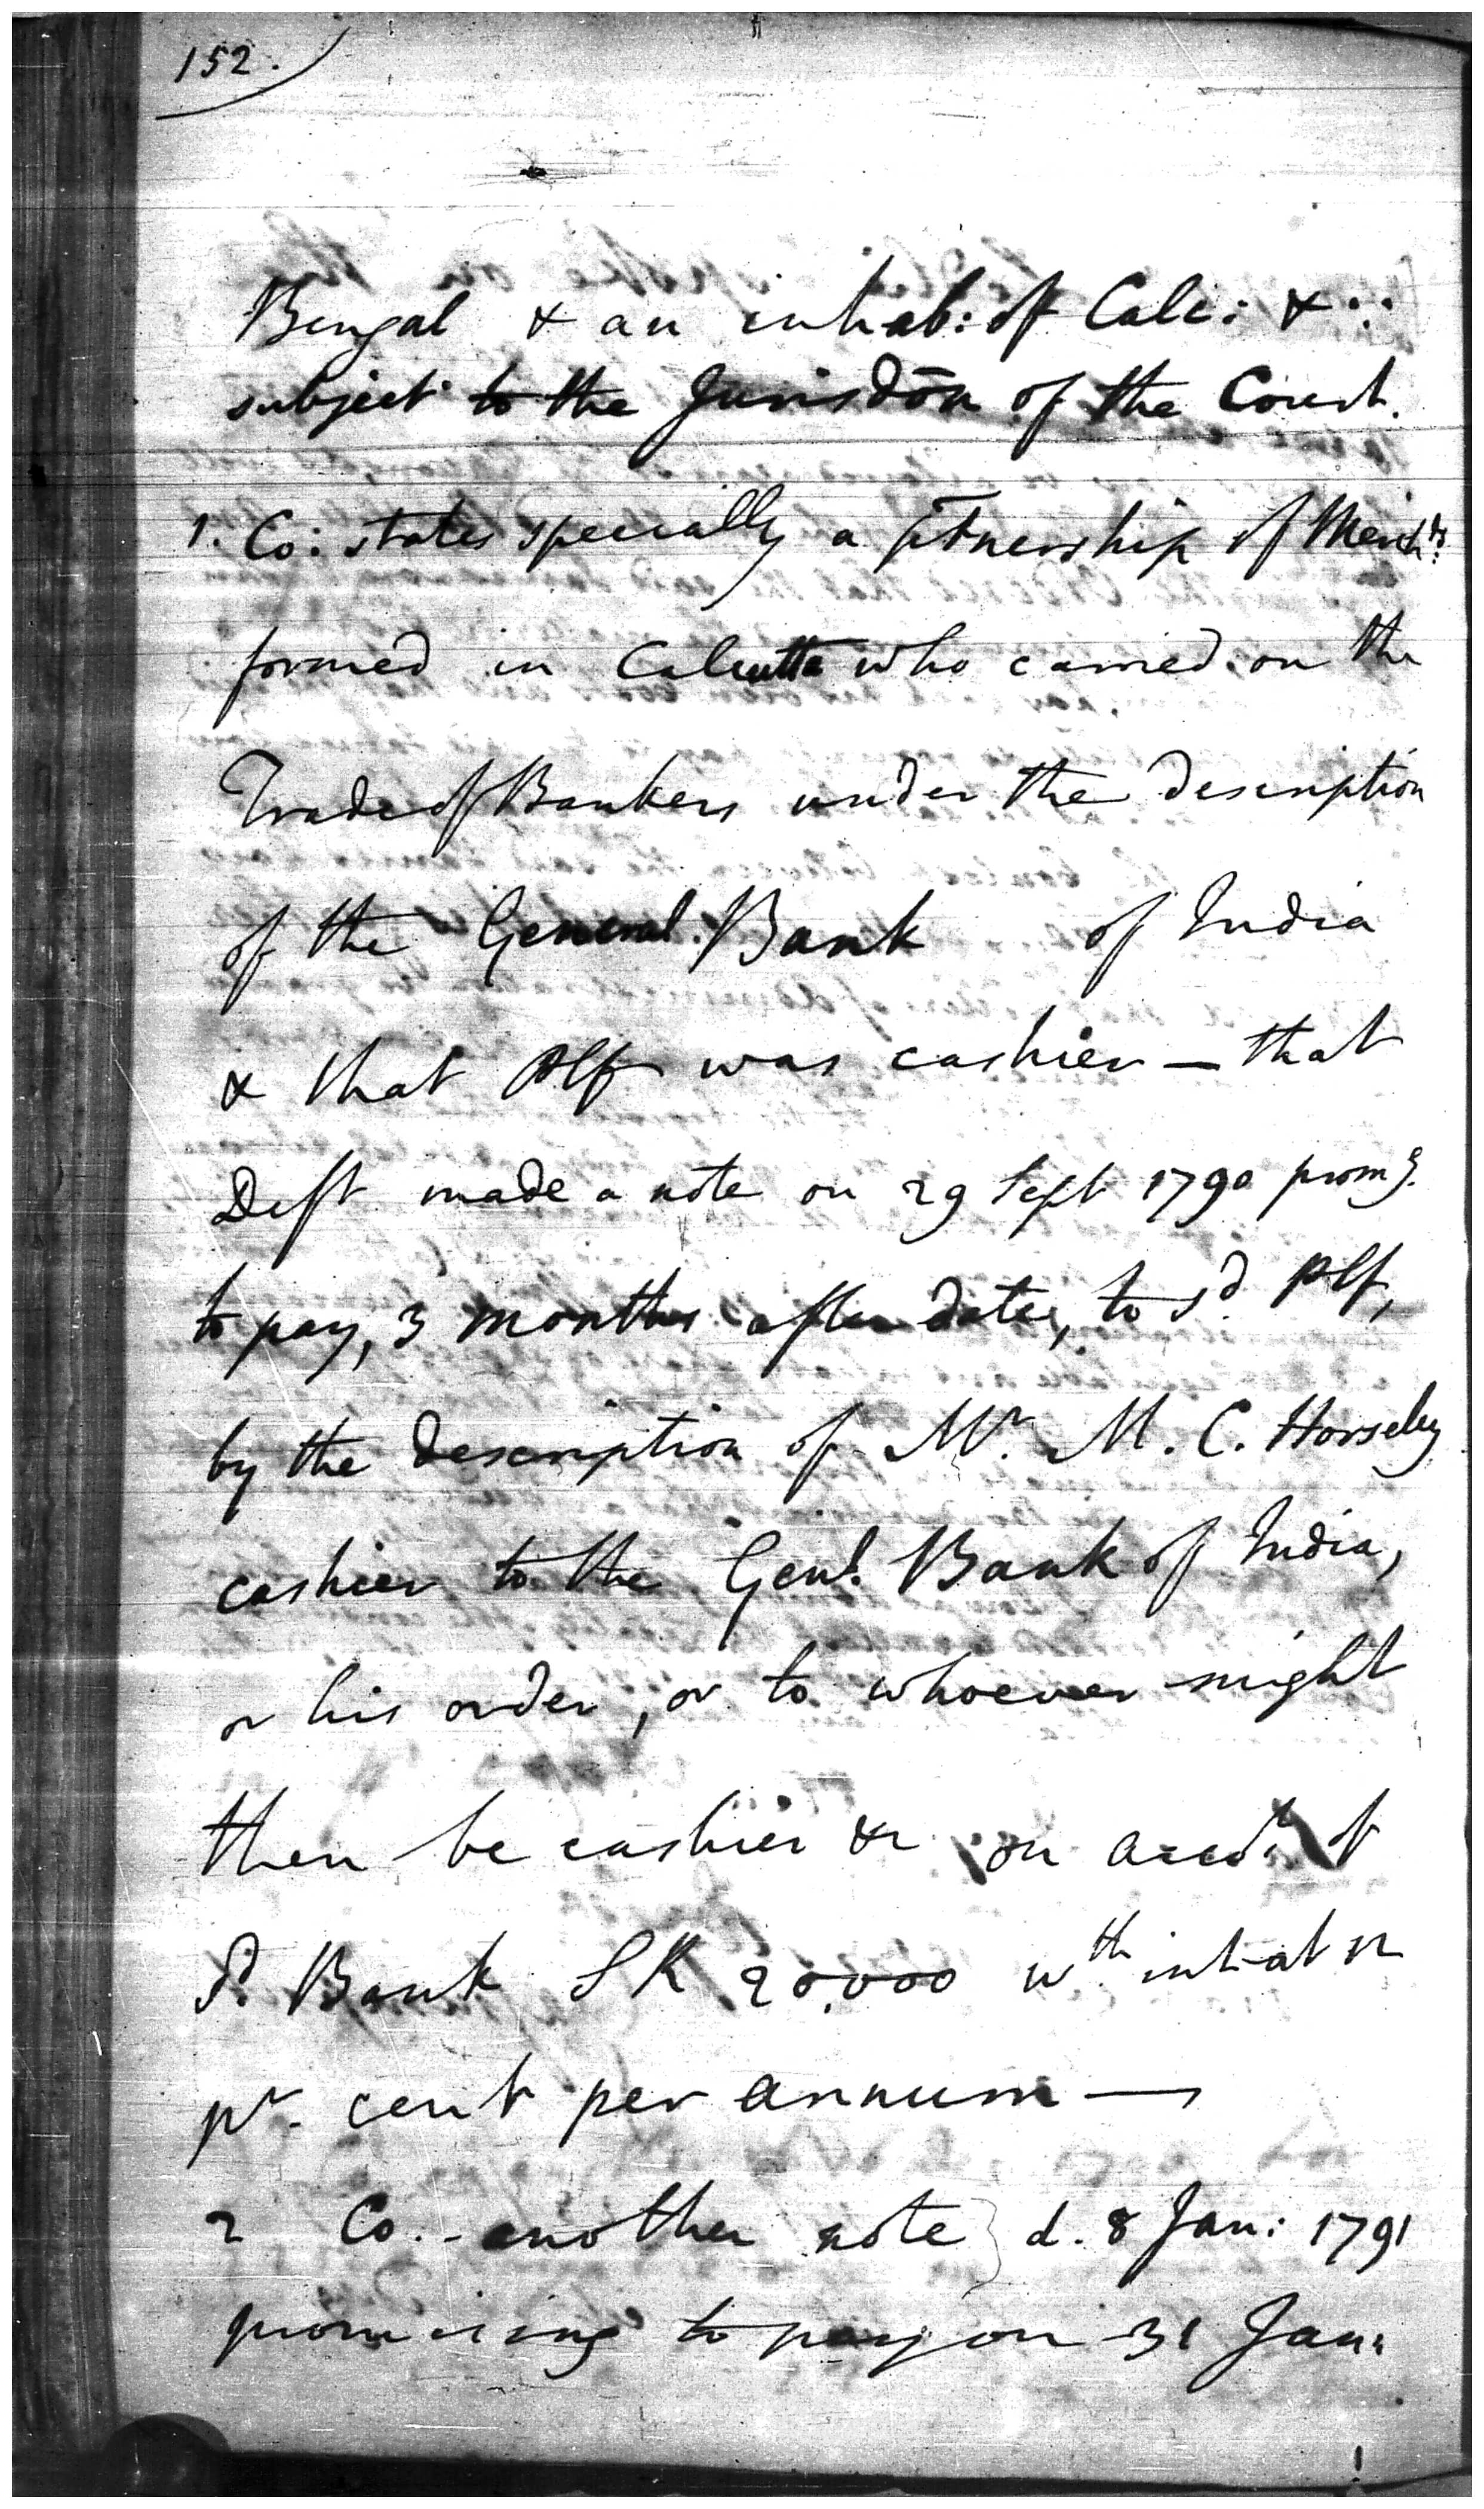 152.
Bengal & an inhab: of Calc: & ∴
subject to the Jurisdōn of the Court.
1. Co: states specially a p̄tnership of Merchts.
formed in Calcutta who carried on the
Trade of Bankers under the description
of the General Bank of India
& that Plf was cashier — that
Deft made a note on 29 Sept 1790 promg.
to pay, 3 months after date, to sd. Plf,
by the description of Mr. M. C. Horseley
cashier to the Genl. Bank of India,
or his order, or to whoever might
then be cashier &c on acct. of
sd. Bank SR 20,000 wth. int at 12
pr. cent per annum —
2 Co. - another note } d. 8 Jan: 1791
promising to pay on 31 Jan: